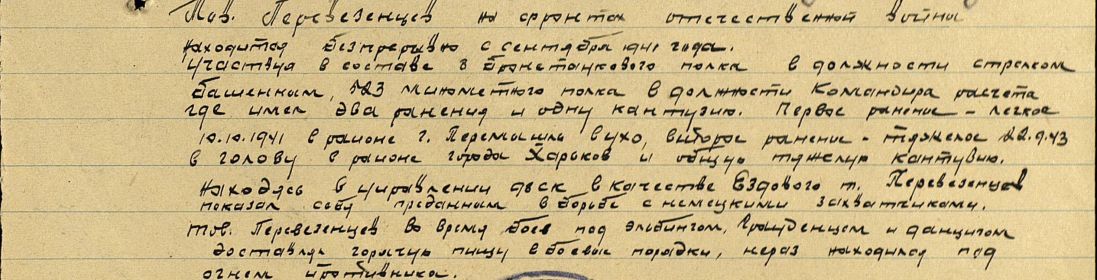 Тов. Перевезенцев на фронтах отечественной войны
находится безпрерывно с сентября 1941 года.
участвуя в составе 3 бронетанкового полка в должности стрелком
башенным, 523 минометного полка в должности Командира расчета
где имел два ранения и одну кантузию. Первое ранение - легкое
10.10.1941 в районе г. Перемышля в ухо, второе ранение - тяжелое 22.9.43
в голову в районе города Харьков и общую тяжелую кантузию.
Находясь в управлении 98ск в качестве Ездового т. Перевезенцев
показал себя преданным в борьбе с немецкими захватчиками.
Тов. Перевезенцев во время боев под Эльбингом, Грауденцем и данцигом
доставляя горячую пищу в боевые порядки, нераз находился под
огнем противника.